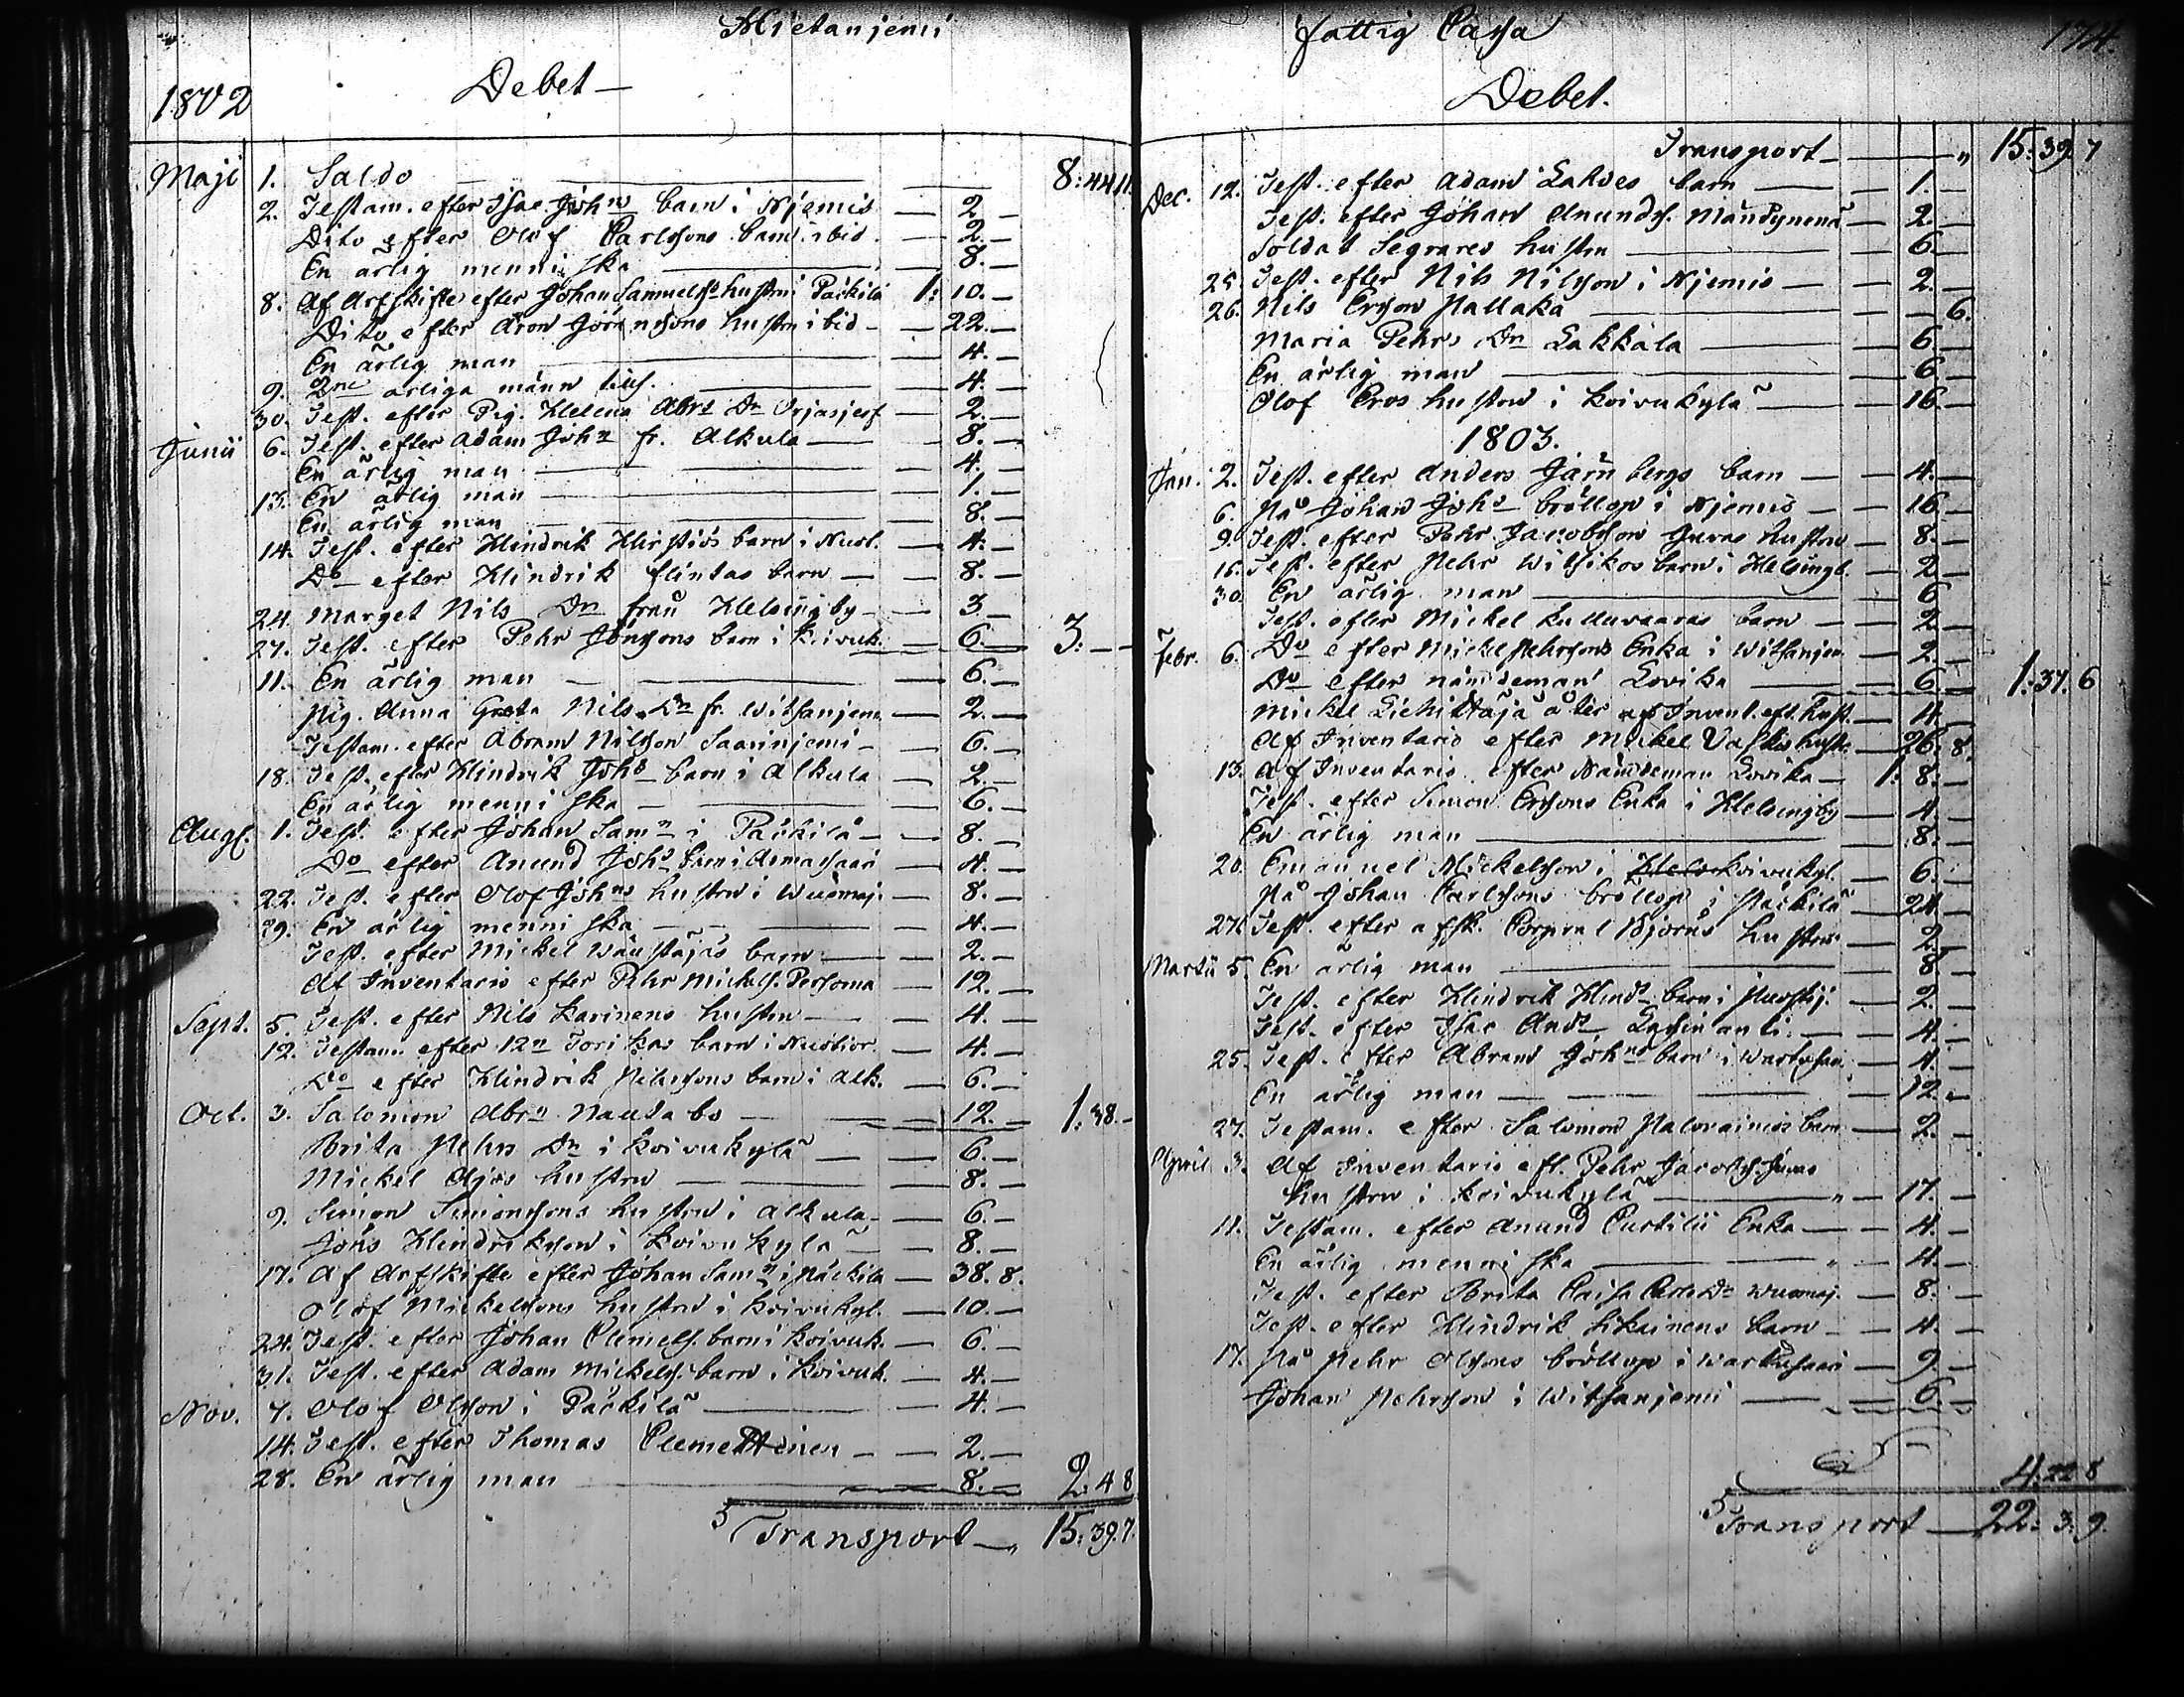 Hietaniemi
1802 Debet
Maji 1. Saldo 8:44.11.
2. Testam. efter Isac Johns barn i Njemis 2.
Dito efter Olof Carlssons barn ibid. 2.
En ärlig menniska 8.
8. Af Arfskifte efter Johan Samuelss hustru i Päckilä 1: 10.
Dito efter Aron Göranssons hustru ibid 22.
En ärlig man 4.
9. 2ne ärliga männ 4.
30. Test. efter Pig. Helena Abrs Dr 2.
Junii 6. Test. efter Adam Johs fr. Alkula 8.
En ärlig man 4.
13. En ärlig man 1.
En ärlig man 8.
14. Test. efter Hindrik Hirstiös barn i 4.
Do efter Hindrik flintas barn 8.
24. Marget Nils Dr från Helsingby 3
27. Test. efter Pehr Jönssons barn i Koivuk. 6. 3:
11. En ärlig man 6.
Pig. Anna Greta Nils Dr fr. Witsanjemi 2.
Testam. efter Abram Nilsson Saarinjemi 6.
18. Test. efter Hindrik Johs barn i Alkula 2.
En ärlig menniska 6.
Aug. 1. Test. efter Johan Sams i Päckilä 8.
Do efter Anund Johs barn i Armassaari 4.
22. Test. efter Olof Johns hustru i Wuomaj. 8.
29. En ärlig menniska 4.
Test. efter Mickel barn 2.
Af Inventario efter Pehr Mickelss. 12.
Sept. 5. Test. efter Nils Karinens hustru 4.
12. Testam. efter barn i 4.
Do efter Hindrik Pehrssons barn i Alk. 6.
Oct. 3. Salomon Abrs Nautabo 12. 1:38.
Brita Pehrs Dr i Koivukylä 6.
Mickel hustru 8.
9. Simon Simonssons hustru i Alkula 6.
Jöns Hindriksson i Koivukylä 8.
17. Af Arfskifte efter Johan Sams i Päckila 38. 8.
Olof Mickelssons hustru i Koivukyl. 10.
24. Test. efter Johan Clemetss. barn i Koivuk. 6.
31. Test. efter Adam Mickelss. barn i Koivuk. 4.
Nov. 7. Olof Olsson i Päckilä 4.
14. Test. efter Thomas Clemettinen 2.
28. En ärlig man 8. 2:4 8
Transport 15:39.7.
fattig Cassa 174.
Debet.
Transport 15:39 7
Dec. 12. Test. efter Adam Lahdes barn 1.
Test. efter Johan Anundss. 2.
Soldat Segrares hustru 6.
25. Test. efter Nils Nilsson i Njemis 2.
26. Nils Ersson Pallaka 6.
Maria Pehrs Dr Lakkala 6.
En ärlig man 6.
Olof Ers hustru i Koivukylä 16.
1803.
Jan. 2. Test. efter Anders Järnbergs barn 4.
6. På Johan Johs bröllop i Njemis 16.
9. Test. efter Pehr Jacobsson hustru 8.
16. Test. efter Pehr Witsikos barn i Helsingb. 2
30. En ärlig man 6
Test. efter Mickel Kulluvaaras barn 2
Febr. 6. Do efter Mickel Pehrssons Enka i Witsanjem. 2.
Do efter nämdeman Lovika 6. 1:37. 6
Mickel åter af Invent. eft. hust. 4.
Af Inventario efter Mickel hustr. 26. 8.
13. Af Inventario efter Nämdeman Lovika 1: 8.
Test. efter Simon Erssons Enka i Helsingby 4.
En ärlig man 8.
20. Emanuel Mickelsson i Koivukyl. 6.
På Johan Carlssons bröllop i Päckilä 24.
27. Test. efter afsk. Corporal Björns hustru 2.
Martii 5. En ärlig man 8.
Test. efter Hindrik Hinds barn i 2.
Test. efter Isac Ands 4.
25. Test. efter Abram Johns barn i 4.
En ärlig man 12.
27. Testam. efter Salomon Palovainios barn 2.
April 3. Af Inventario eft. Pehr Jacobss.
hustru i Koivukylä 17.
11. Testam. efter Anund Curtilii Enka 4.
En ärlig menniska 4.
Test. efter Brita Caisa Carls Dr Wuomaj. 8.
Test. efter Hindrik barn 4.
17. På Pehr Olssons bröllop i 9.
Johan Pehrsson i Witsanjemi 6.
4:22 8
Transport 22: 3: 9.